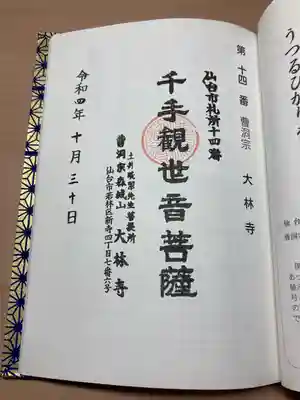 第十四番 曹洞宗 大林寺
仙台市札所十四番
千手観世音菩薩
土井晩翠先生菩提所
曹洞宗森城山 大林寺
仙台市若林区新寺四丁目七番六号
令和四年十月三十日
うつるひかり